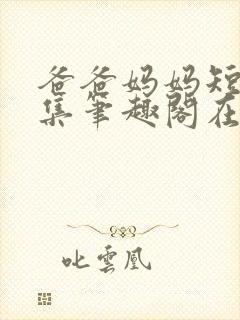 爸爸妈妈短
集笔趣阁在
叱云凰